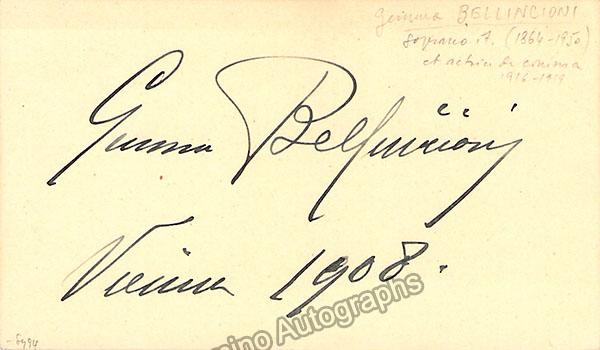 Gemma BELLINCIONI
Soprano it. (1864-1950)
et actrice de cinéma
1916-1919
Gemma Bellincioni
Vienna 1908.
ino Autographs